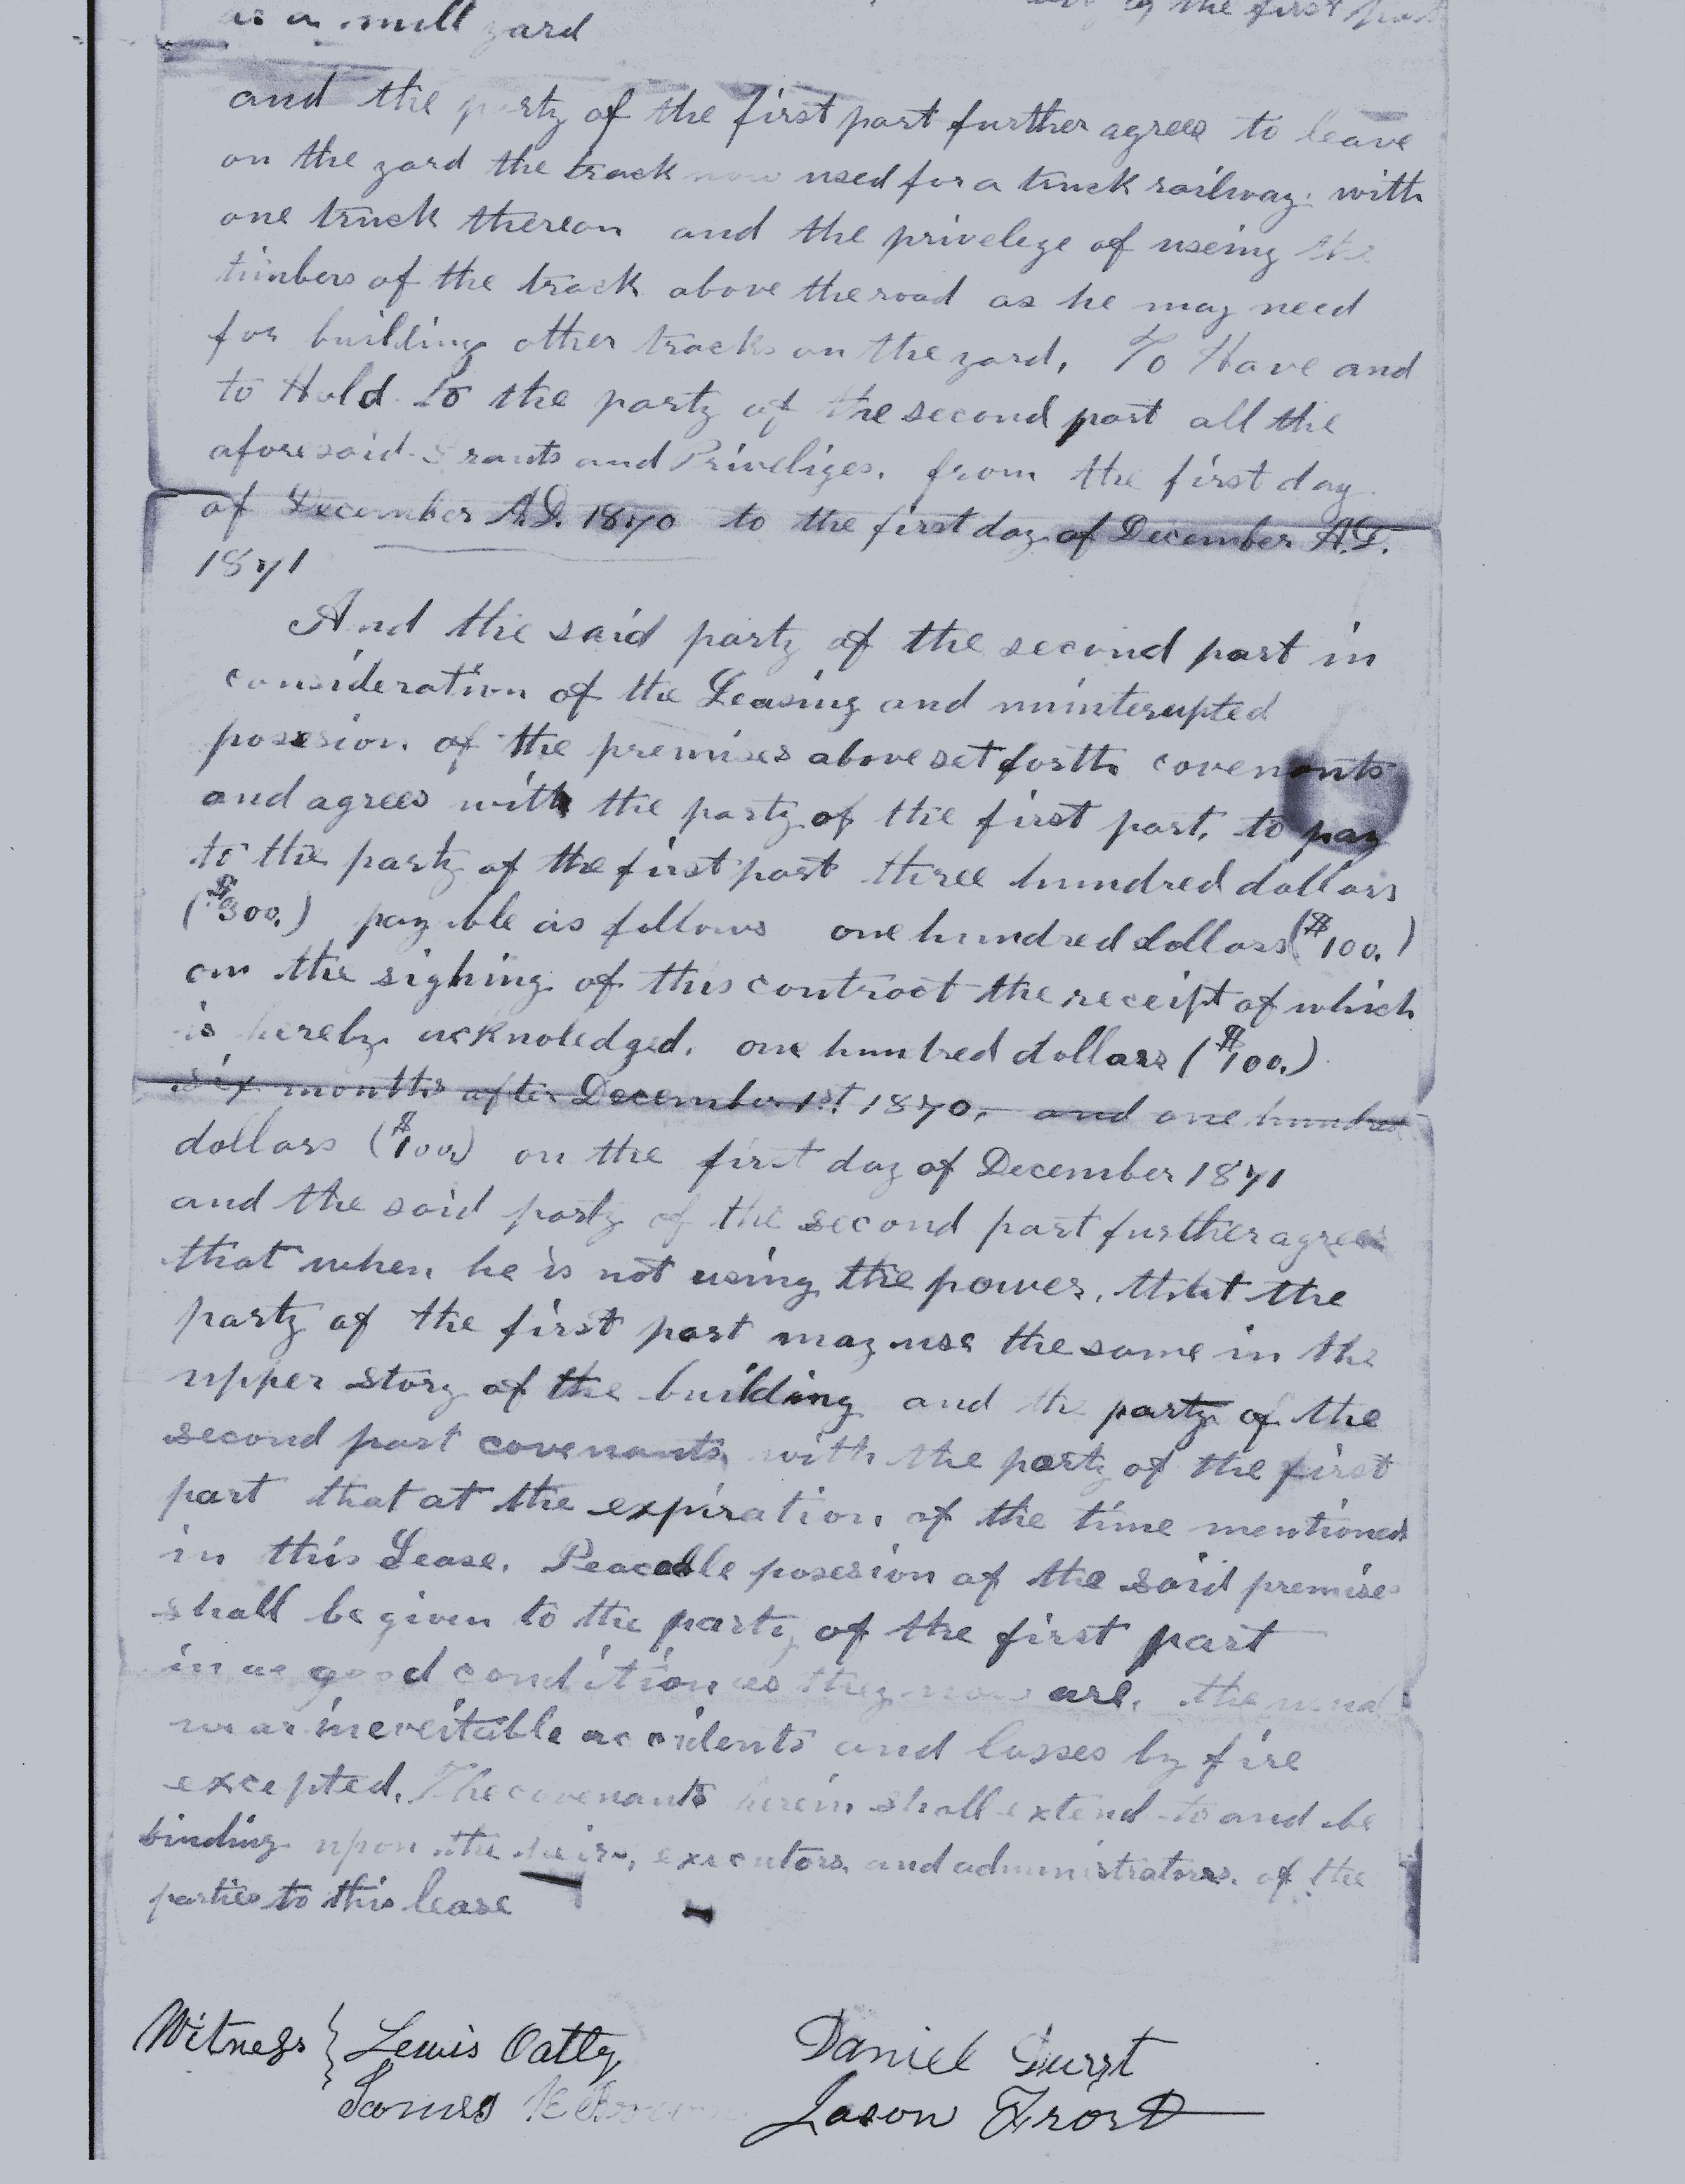 by the first part
as a mill yard
and the party of the first part further agrees to leave
on the yard the track now used for a truck railway. with
one truck thereon and the privelege of useing the
timbers of the track above the road as he may need
for building other tracks on the yard, To Have and
to Hold to the party of the second part all the
aforesaid Grants and Priveliges. from the first day
of December A.D. 1870 to the first day of December A.D.
1871
And the said party of the second part in
consideration of the Leasing and uninterupted
posesion of the premises above set forth covenants
and agrees with the party of the first part, to pay
to the party of the first part three hundred dollars
($300.) payable as follows one hundred dollars ($100.)
on the sighing of this contract the receipt of which
is hereby acknoledged. one hundred dollars ($100.)
six months after December 1st 1870, and one hundred
dollars ($100.) on the first day of December 1871
and the said party of the second part further agrees
that when he is not using the power, that the
party of the first part may use the same in the
upper story of the building and the party of the
second part covenants with the party of the first
part that at the expiration of the time mentioned
in this Lease. Peaceable posesion of the said premises
shall be given to the party of the first part
in as good condition as they now are. the
wear inevitable accidents and losses by fire
excepted. The covenants herein shall extend to and be
binding upon the heirs, executors, and administrators. of the
parties to this lease
Witness } Lewis Oatley Daniel Durst
James K Brown Jason Frost